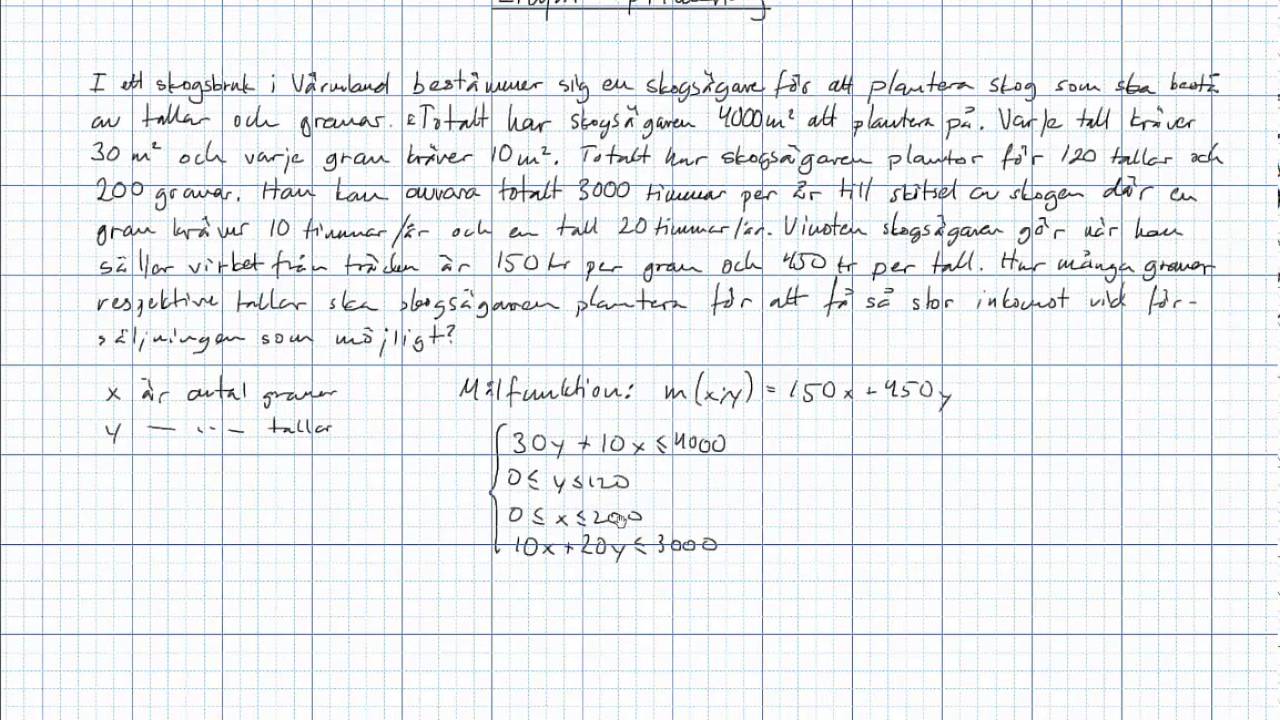 I ett skogsbruk i Värmland bestämmer sig en skogsägare för att plantera skog som ska bestå
av tallar och granar. Totalt har skogsägaren 4000 m² att plantera på. Varje tall kräver
30 m² och varje gran kräver 10 m². Totalt har skogsägaren plantor för 120 tallar och
200 granar. Han kan avvara totalt 3000 timmar per år till skötsel av skogen där en
gran kräver 10 timmar/år och en tall 20 timmar/år. Vinsten skogsägaren gör när han
säljer virket från träden är 150 kr per gran och 450 kr per tall. Hur många granar
respektive tallar ska skogsägaren plantera för att få så stor inkomst vid för-
säljningen som möjligt?
x är antal granar
y — ·· — tallar
Målfunktion: m(x;y) = 150x + 450y
30y + 10x ≤ 4000
0 ≤ y ≤ 120
0 ≤ x ≤ 200
10x + 20y ≤ 3000